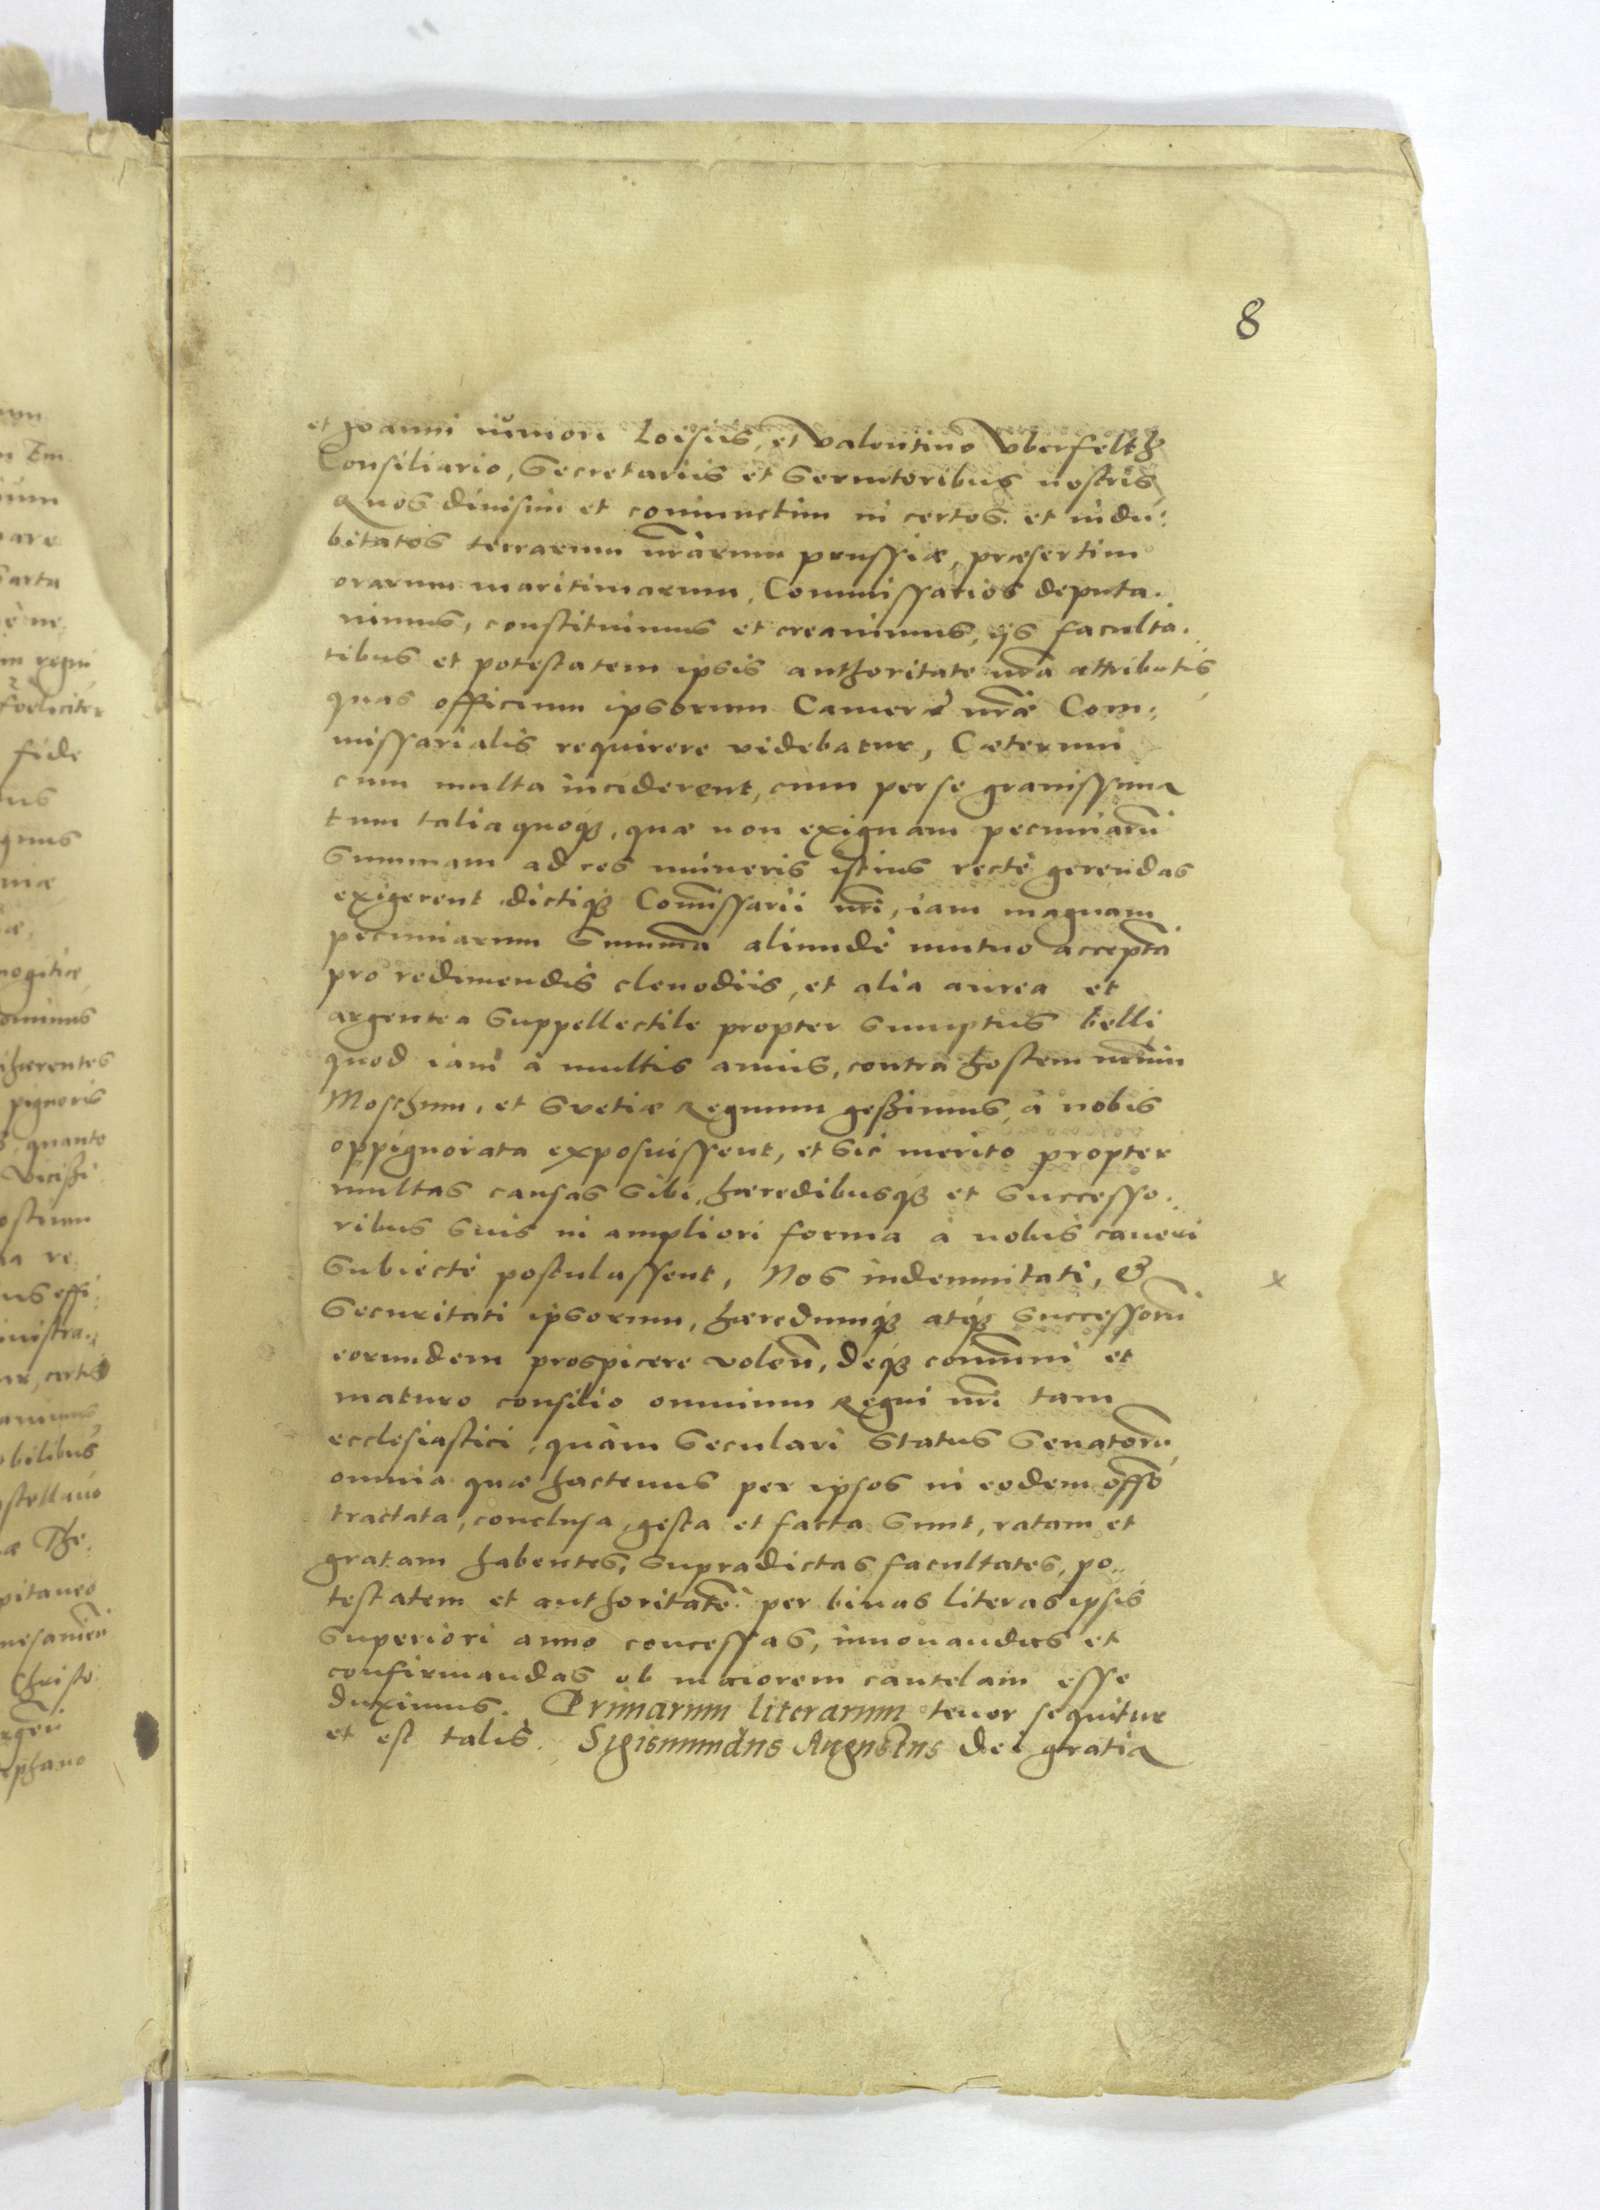 8
et Joanni iuniori Loisiis, et Valentino Vberfeltz
Consiliario, Secretariis et Seruitoribus nostris,
Quos diuisim et coniunctim in certos et indu:
bitatos terrarum nrarum prussiæ, præsertim
orarum maritimarum, Commissarios deputa.
uimus, constituimus et creauimus, ijs faculta.
tibus et potestatem ipsis authoritate nra attributis
quas officium ipsorum Cameræ nræ Com:
missarialis requirere videbatur, Cæterum
cum multa inciderent, cum per se grauissima
tum talia quoqȝ, quæ non exiguam pecuniarū
Summam ad res muneris istius rectè gerendas
exigerent dictiqȝ Comissarii nri, iam magnam
pecuniarum Summa aliundè mutuo accepta
pro redimendis clenodiis, et alia aurea et
argentea Suppellectile propter Sumptus belli
quod iam à multis annis, contra hostem nrum
Moschum, et Svetiæ Regnum geßimus, à nobis
oppignorata exposuissent, et Sic merito propter
multas causas Sibi, hæredibusqȝ et Successo.
ribus Suis in ampliori forma à nobis caueri
Subiectè postulassent, Nos indemnitati, &
Securitati ipsorum, hæredumqȝ atqȝ Successorū
x
eorundem prospicere volen, deqȝ comuni et
maturo consilio omnium Regni nri tam
ecclesiastici, quàm Seculari Status Senatorū,
omnia quæ hactenus per ipsos in eodem offo
tractata, conclusa, gesta et facta Sunt, ratam et
gratam habentes, Supradictas facultates, po..
testatem et authoritatē per binas literas ipsis
Superiori anno concessas, innouandas et
confirmandas ob maiorem cautelam esse
duximus. Primarum literarum tenor sequitur
et est talis. Sigismundus Augustus dei gratia